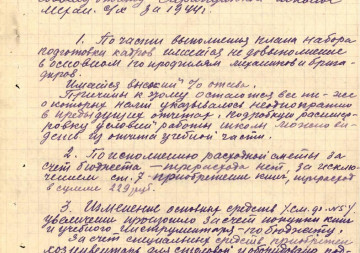 механ. с/х за 1944 г.
1. По части выполнения плана набора
подготовки кадров имеется недовыполнение
в основном по продлениям механиков и брига-
диров.
Имеется высокий % отсева.
Причины к этому остаются все те-же
о которых нами указывалось неоднократно
в предыдущих отчетах. Подробную расшиф-
ровку условий работы школы можно ви-
деть из отчета учебной части.
2. По исполнению расходной сметы за
счет бюджета перерасхода нет за исклю-
чением ст. 7 приобретение книг, перерасход
в сумме 229 руб.
3. Изменение основных средств
увеличение произошло за счет покупки книг
и учебного инструмента - по бюджету.
За счет специальных средств приобретен
хоз. инвентарь для столовой и оборудовано под-